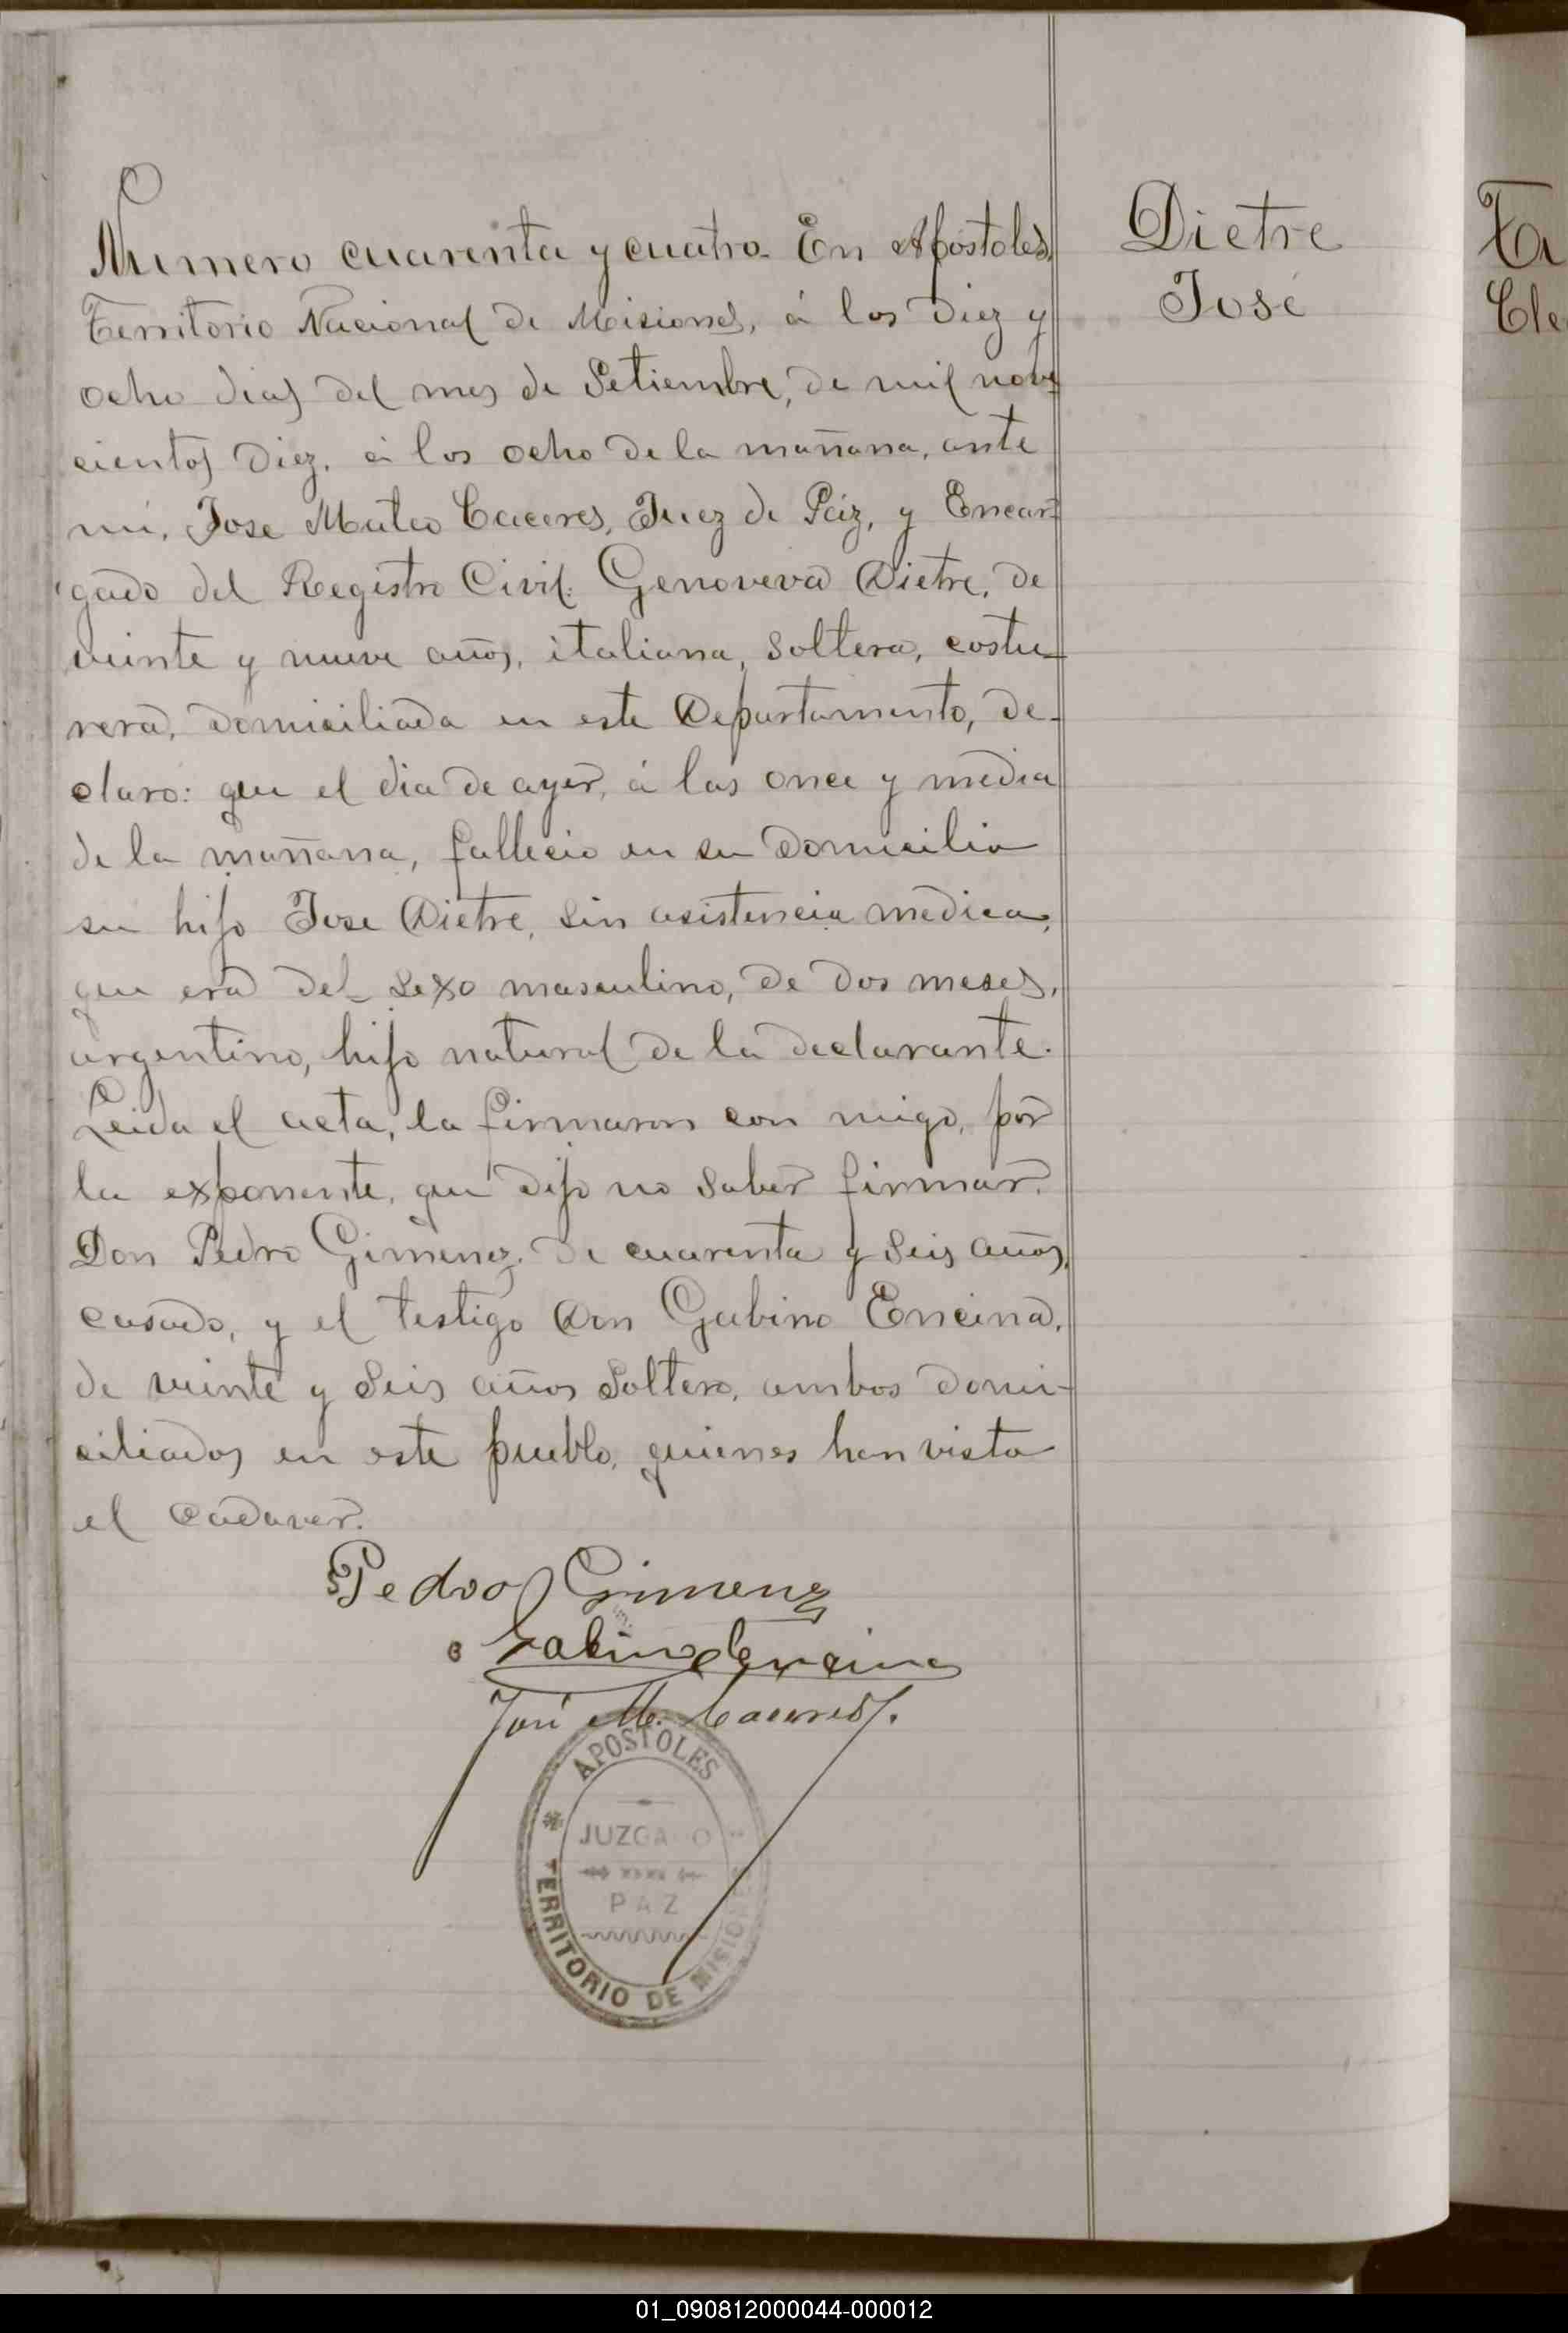 Dietre
José
Numero cuarenta y cuatro. En Apostoles,
Territorio Nacional de Misiones, á los diez y
ocho dias del mes de Setiembre, de mil nove-
cientos diez, á los ocho de la mañana, ante
mi, Jose Mateo Caceres, Juez de Paz, y Encar-
gado del Registro Civil: Genoveva Dietre, de
veinte y nueve años, italiana, soltera, costu-
rera, domiciliada en este Departamento, de-
claro: que el dia de ayer, á las once y media
de la mañana, fallecio en su domicilio
su hijo Jose Dietre, sin asistencia medica,
que era del sexo masculino, de dos meses,
argentino, hijo natural de la declarante.
Leida el acta, la firmaron con migo, por
la exponente, que dijo no saber firmar.
Don Pedro Gimenez, de cuarenta y seis años,
casado, y el testigo Don Gabino Encina,
de veinte y seis años soltero, ambos domi-
ciliados en este pueblo, quienes han visto
el cadaver.
Pedro Gimenez
Gabino Encina
José M. Caceres
APOSTOLES
JUZGADO
PAZ
TERRITORIO DE MISIONES
01_090812000044-000012